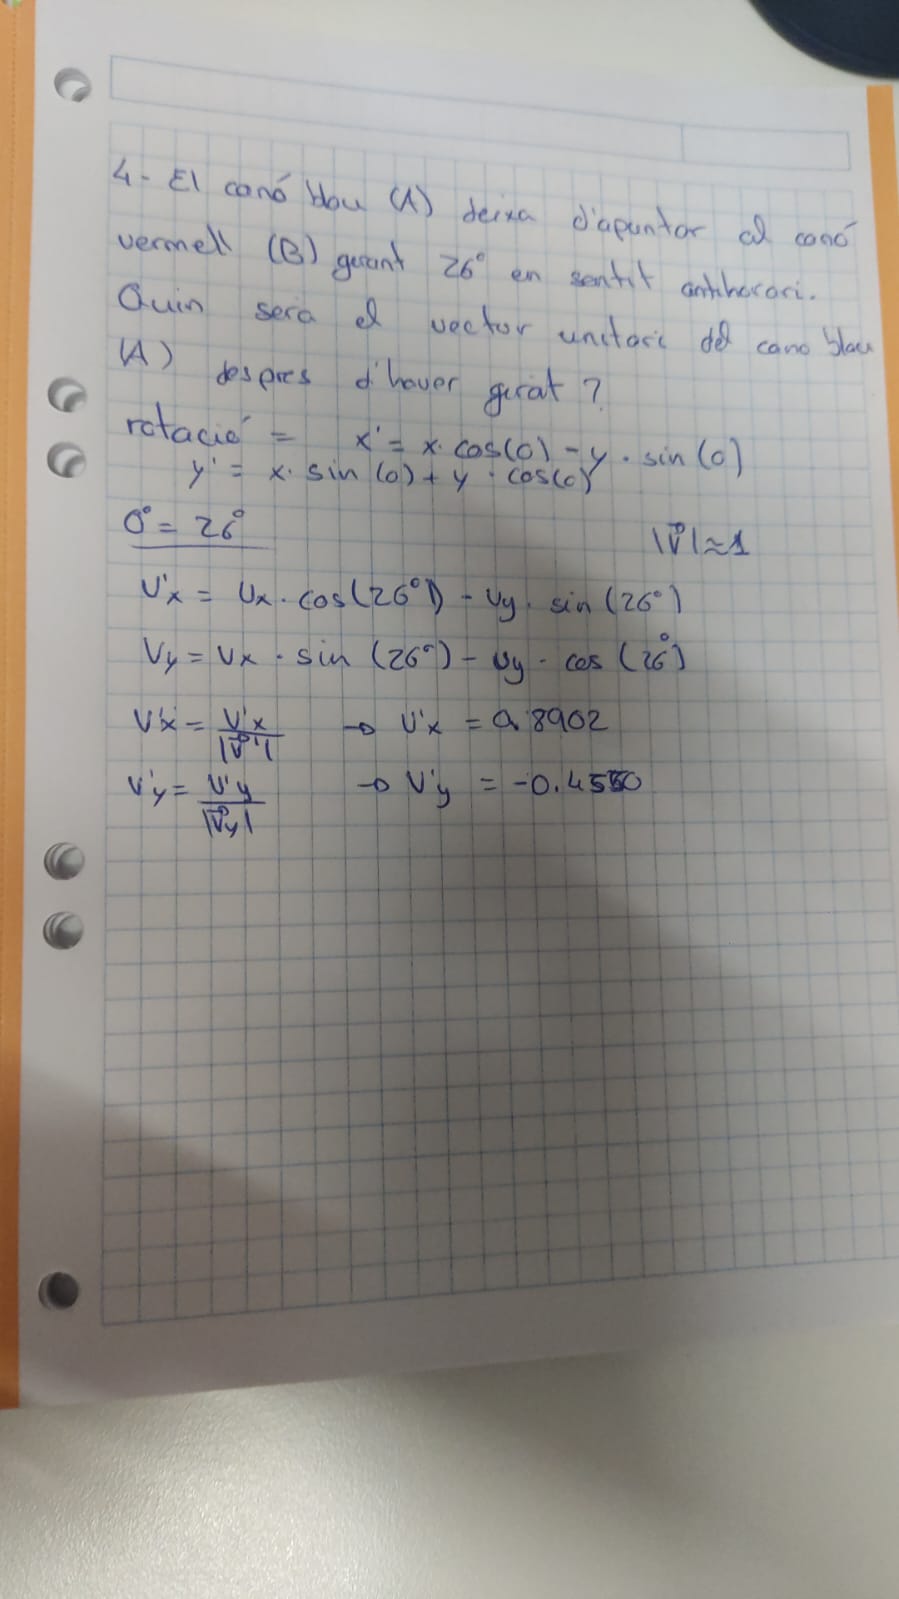 4- El canó blau (A) deixa d'apuntar al canó
vermell (B) girant 26° en sentit antihorari.
Quin sera el vector unitari del cano blau
(A) despres d'haver girat?
rotació = x' = x · cos(0) - y · sin(0)
y' = x · sin(0) + y · cos(0)
0° = 26°
|V| ≈ 1
V'x = Vx · cos(26°) - Vy · sin(26°)
Vy = Vx · sin(26°) - Vy · cos(26°)
V'x = V'x / |V'| → V'x = 0.8902
V'y = V'y / |Vy| → V'y = -0.4550